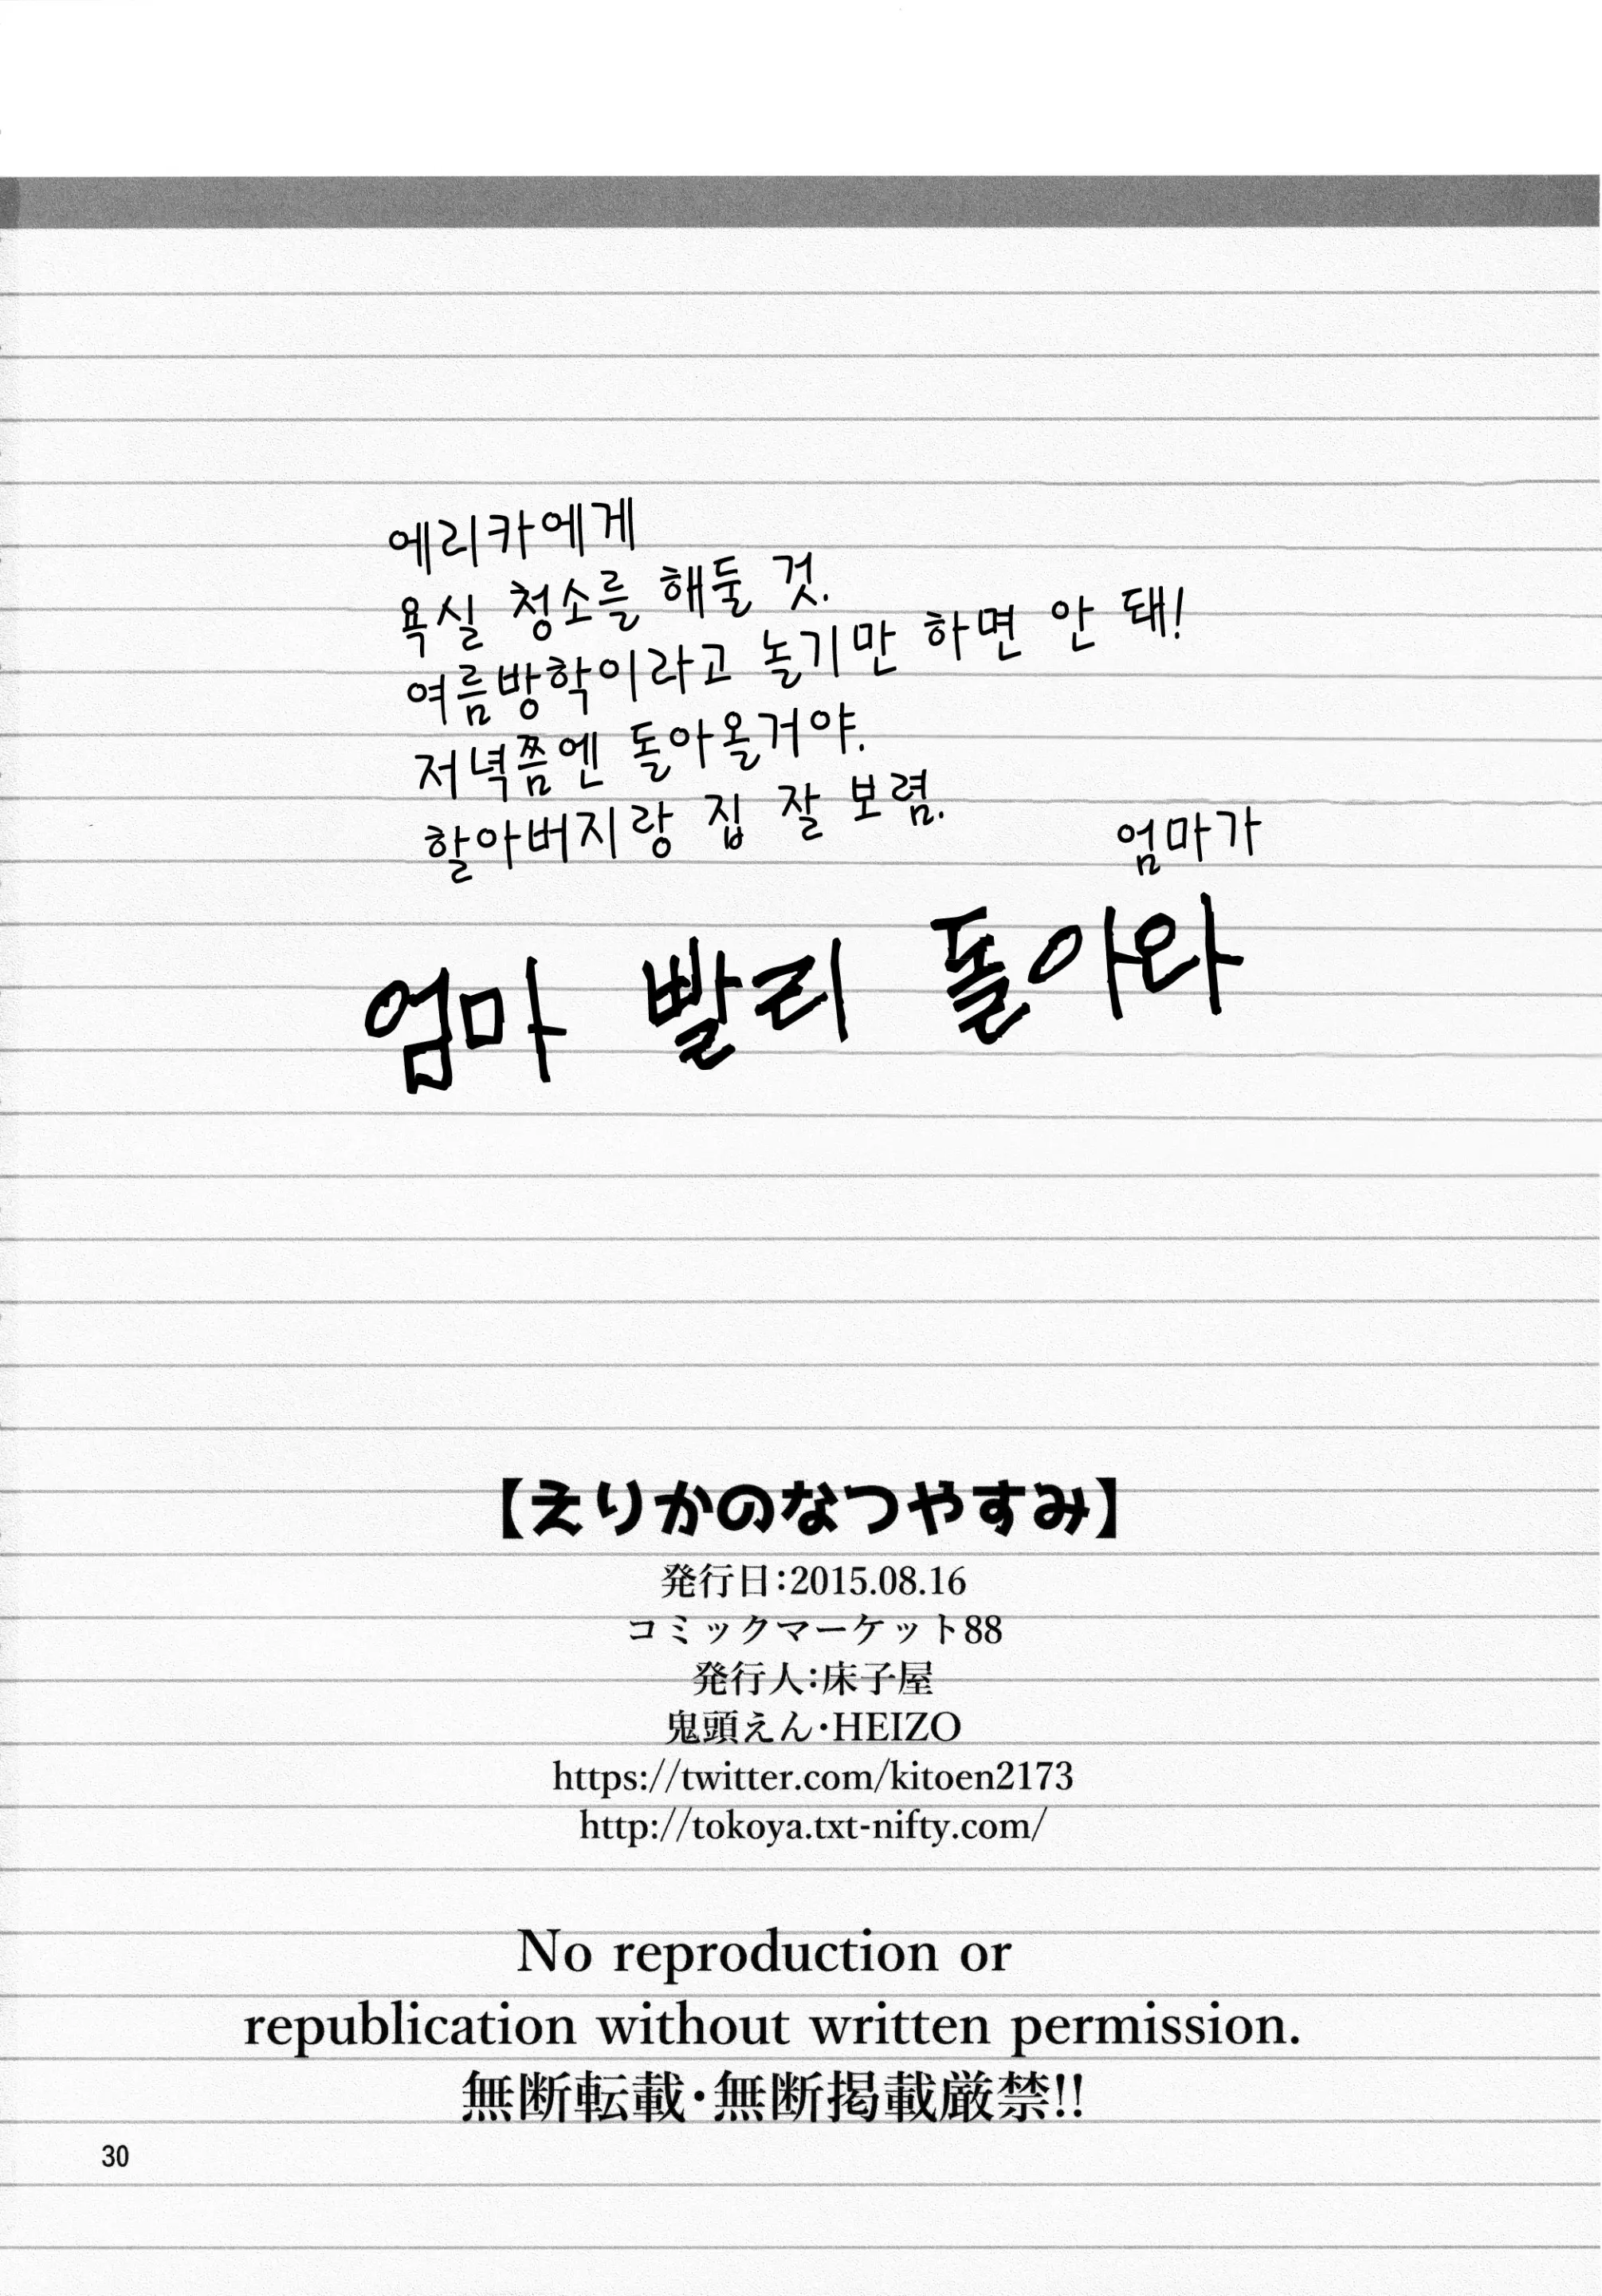 에리카에게
욕실 청소를 해둘 것.
여름방학이라고 놀기만 하면 안 돼!
저녁쯤엔 돌아올거야.
할아버지랑 집 잘 보렴.
엄마가
엄마 빨리 돌아와
【えりかのなつやすみ】
発行日:2015.08.16
コミックマーケット88
発行人:床子屋
鬼頭えん・HEIZO
https://twitter.com/kitoen2173
http://tokoya.txt-nifty.com/
No reproduction or
republication without written permission.
無断転載・無断掲載厳禁!!
30